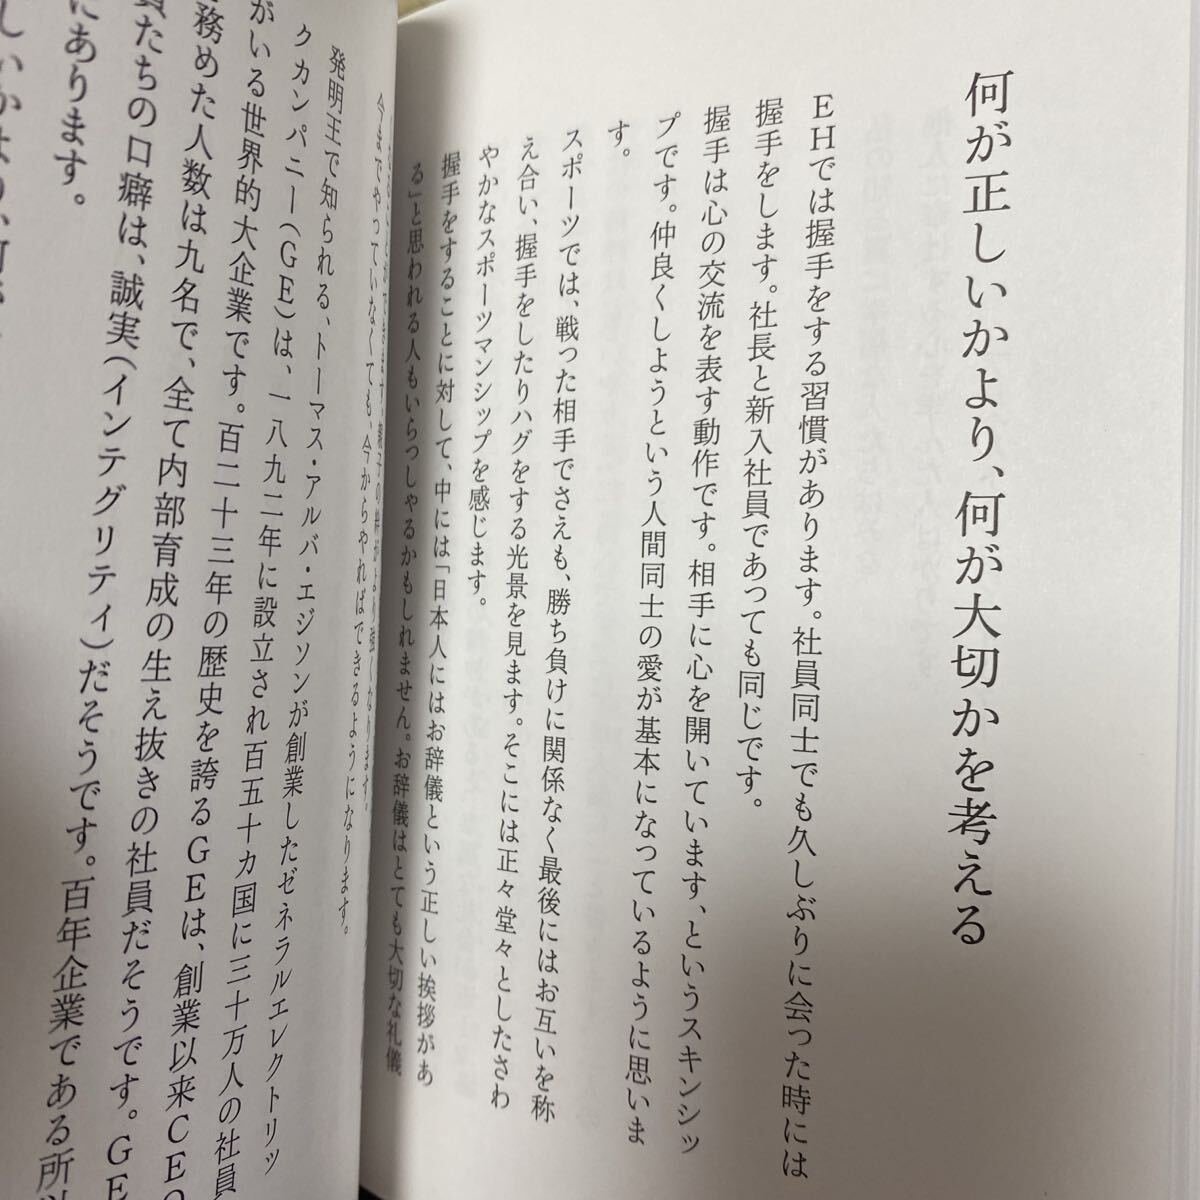 何が正しいかより、何が大切かを考える
EHでは握手をする習慣があります。社員同士でも久しぶりに会った時には
握手をします。社長と新入社員であっても同じです。
握手は心の交流を表す動作です。相手に心を開いています、というスキンシッ
プです。仲良くしようという人間同士の愛が基本になっているように思いま
す。
スポーツでは、戦った相手でさえも、勝ち負けに関係なく最後にはお互いを称
え合い、握手をしたりハグをする光景を見ます。そこには正々堂々としたさわ
やかなスポーツマンシップを感じます。
握手をすることに対して、中には「日本人にはお辞儀という正しい挨拶があ
る」と思われる人もいらっしゃるかもしれません。お辞儀はとても大切な礼儀
できます。親子の絆がより強くなります。
今までやっていなくても、今からやればできるようになります。
発明王で知られる、トーマス・アルバ・エジソンが創業したゼネラルエレクトリッ
クカンパニー(GE)は、一八九二年に設立され百五十カ国に三十万人の社員
がいる世界的大企業です。百二十三年の歴史を誇るGEは、創業以来CEO
務めた人数は九名で、全て内部育成の生え抜きの社員だそうです。GE
員たちの口癖は、誠実(インテグリティ)だそうです。百年企業である所以
にあります。
しいかより、何が